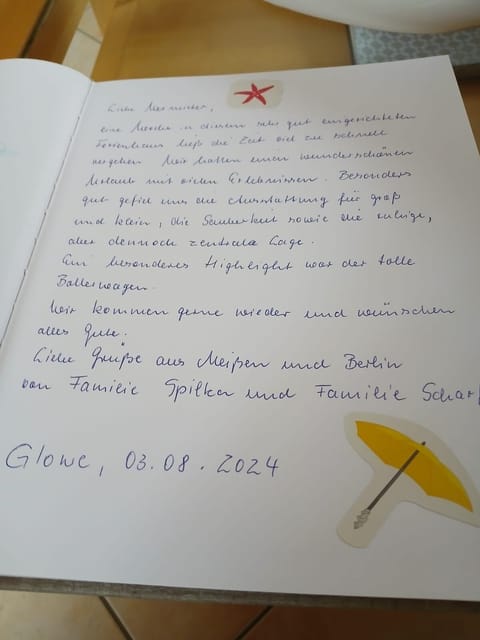 Liebe Vermieter,
eine Woche in diesem sehr gut eingerichteten
Ferienhaus ließ die Zeit viel zu schnell
vergehen. Wir hatten einen wunderschönen
Urlaub mit vielen Erlebnissen. Besonders
gut gefiel uns die Ausstattung für groß
und klein, die Sauberkeit sowie die ruhige,
aber dennoch zentrale Lage.
Ein besonderes Highlight war der tolle
Bollerwagen.
Wir kommen gerne wieder und wünschen
alles Gute.
Liebe Grüße aus Meißen und Berlin
von Familie Spilka und Familie Scharf
Glowe, 03.08.2024